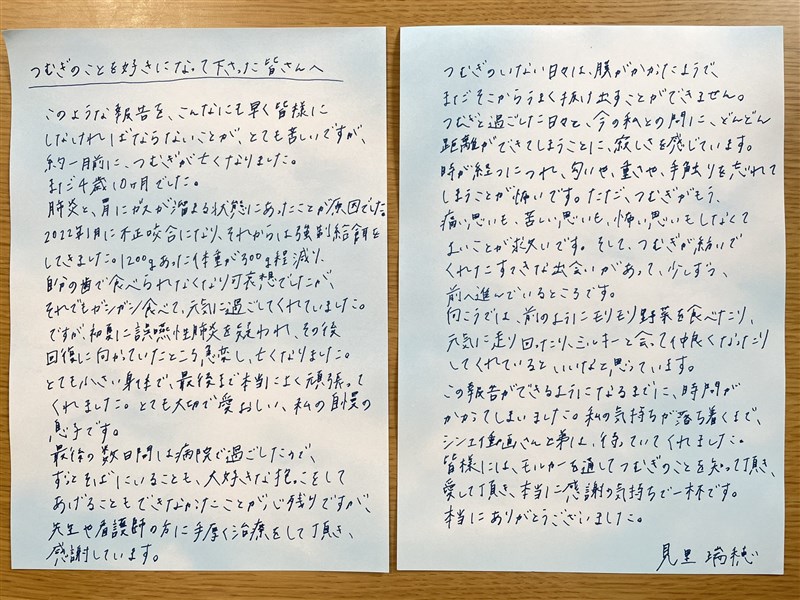 つむぎのことを好きになって下さった皆さんへ
このような報告を、こんなにも早く皆様に
しなければならないことが、とても苦しいですが、
約一月前に、つむぎが亡くなりました。
まだ4歳10ヶ月でした。
肺炎と、胃にガスが溜まる状態にあったことが原因でした。
2022年1月に不正咬合になり、それからは強制給餌を
してきました。1200gあった体重が300g程減り、
自分の歯で食べられなくなり可哀想でしたが、
それでもガシガシ食べて、元気に過ごしてくれていました。
ですが、初夏に誤嚥性肺炎を疑われ、その後
回復に向かっていたところ急変し、亡くなりました。
とても小さい身体で、最後まで本当によく頑張って
くれました。とても大切で愛おしい、私の自慢の
息子です。
最後の数日間は病院で過ごしたので、
ずっとそばにいることも、大好きな抱っこをして
あげることもできなかったことが心残りですが、
先生や看護師の方に手厚く治療をして頂き、
感謝しています。
つむぎのいない日々は、膜がかかったようで、
まだそこからうまく抜け出すことができません。
つむぎと過ごした日々と、今の私との間に、どんどん
距離ができてしまうことに、寂しさを感じています。
時が経つにつれ、匂いや、重さや、手触りを忘れて
しまうことが怖いです。ただ、つむぎがもう、
痛い思いも、苦しい思いも、怖い思いもしなくて
よいことが救いです。そして、つむぎが紡いで
くれたすてきな出会いがあって、少しずつ、
前へ進んでいるところです。
向こうでは、前のようにモリモリ野菜を食べたり、
元気に走り回ったり、ミルキーと会って仲良くなったり
してくれているといいなと思っています。
この報告ができるようになるまでに、時間が
かかってしまいました。私の気持ちが落ち着くまで、
シンエイ動画さんと弟は、待っていてくれました。
皆様には、モルカーを通してつむぎのことを知って頂き、
愛して頂き、本当に感謝の気持ちで一杯です。
本当にありがとうございました。
見里 瑞穂